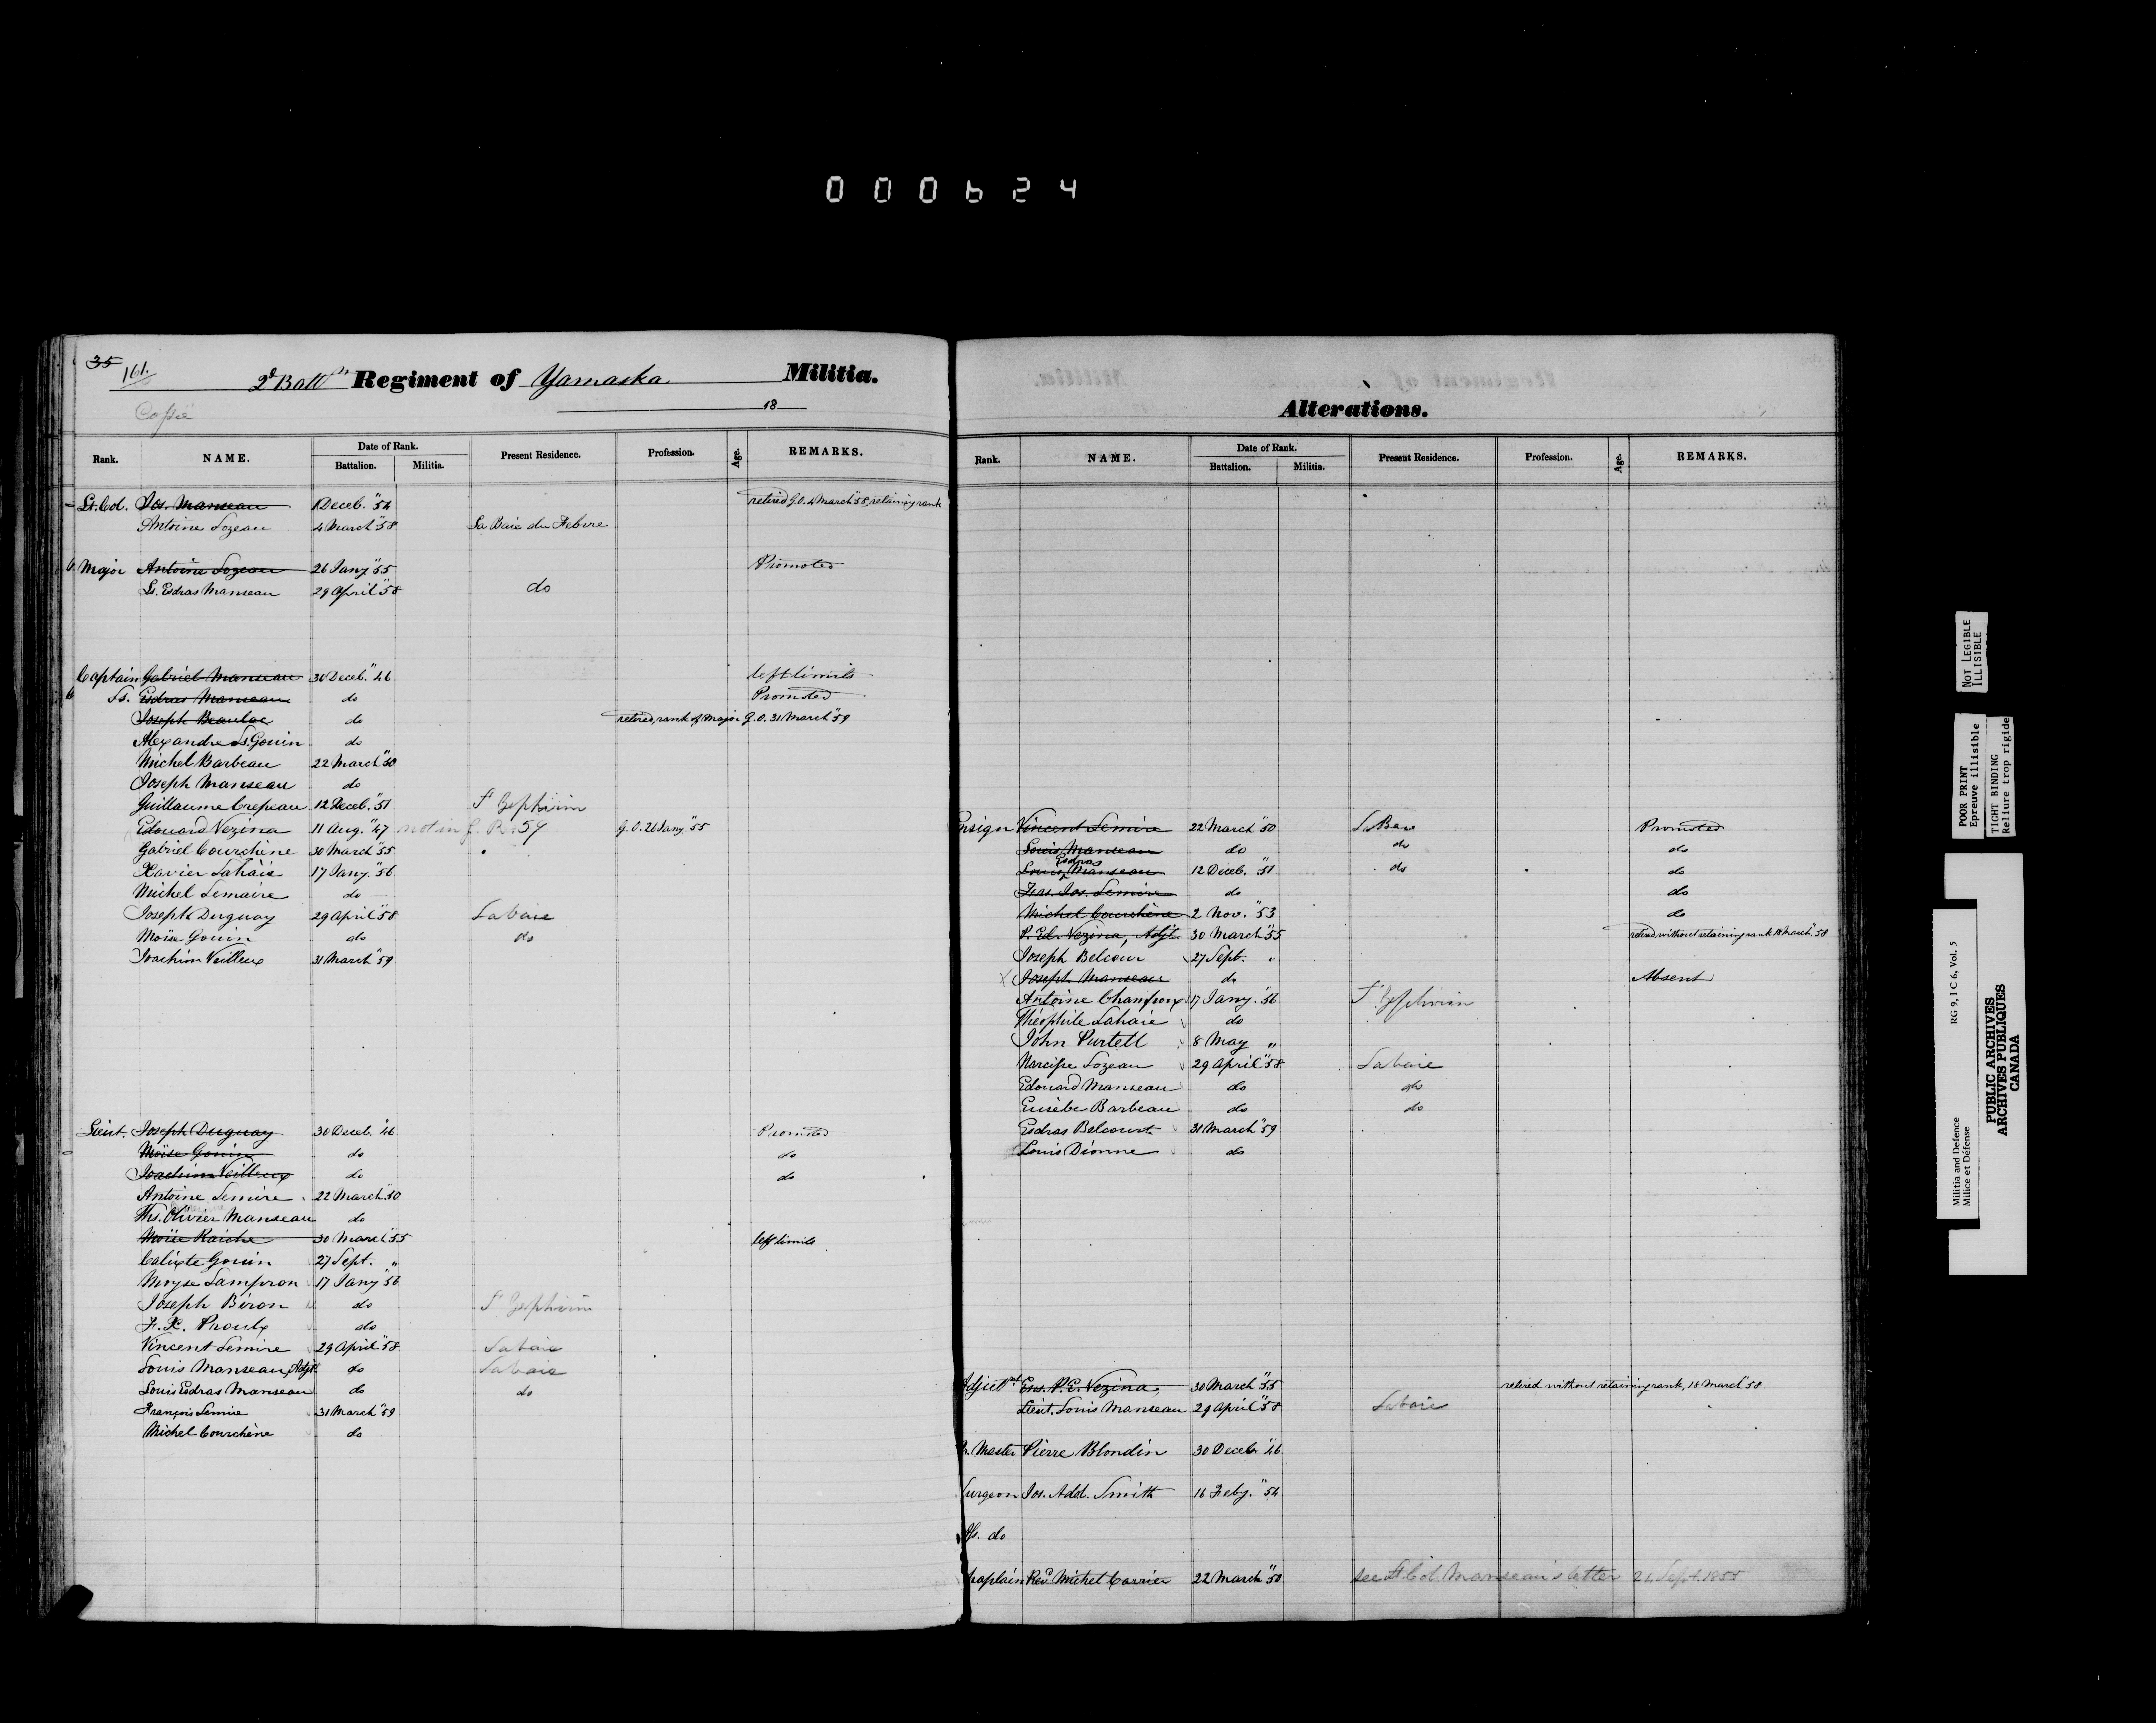 000624
35 161.
2d Battn Regiment of Yamaska Militia.
18
Copié
Rank. NAME. Date of Rank. Battalion. Militia. Present Residence. Profession. Age. REMARKS.
Lt. Col. Jos. Manseau 1 Deceb. "54 retired G.O. 4 March "58, retaining rank
Antoine Lozeau 4 March "58 La Baie du Febvre
Major Antoine Lozeau 26 Jany "55 Promoted
Ls. Esdras Manseau 29 April "58 do
Captain Gabriel Manseau 30 Deceb. "46 left limits
Ls. Esdras Manseau do Promoted
Joseph Beaulac do retired, rank of Major G.O. 31 March "59
Alexandre Ls. Gouin do
Michel Barbeau 22 March "50
Joseph Manseau do
Guillaume Crepeau 12 Deceb. "51 St Zephirin
Edouard Vezina 11 Aug. "47 not in 59 G.O. 26 Jany. "55
Gabriel Courchène 30 March "55
Xavier Lahaie 17 Jany. "56
Michel Lemaire do
Joseph Duguay 29 April "58 Labaie
Moïse Gouin do do
Joachim Veilleux 31 March "59
Lieut. Joseph Duguay 30 Deceb. "46 Promoted
Moïse Gouin do do
Joachim Veilleux do do
Antoine Lemire 22 March "50
Ths. Olivier Manseau do
Moïse Raiche 30 March "55 left limits
Calixte Gouin 27 Sept. "
Moyse Lampron 17 Jany "56
Joseph Biron do St Zephirin
F. X. Proulx do
Vincent Lemire 29 April "58 Labaie
Louis Manseau, Adjt do Labaie
Louis Esdras Manseau do do
François Lemire 31 March "59
Michel Courchène do
Alterations.
Rank. NAME. Date of Rank. Battalion. Militia. Present Residence. Profession. Age. REMARKS.
Ensign Vincent Lemire 22 March "50 La Baie Promoted
Louis Manseau do do do
Louis Esdras Manseau 12 Deceb. "51 do do
Frs. Jos. Lemire do do
Michel Courchène 2 Nov. "53 do
P. Ed. Vezina, Adjt. 30 March "55 retired without retaining rank 18 March "58
Joseph Belcour 27 Sept. "
Joseph Manseau do Absent
Antoine Champoux 17 Jany. "56 St Zephirin
Théophile Lahaie do
John Purtell 8 May "
Narcisse Lozeau 29 April "58 Labaie
Edouard Manseau do do
Eusèbe Barbeau do do
Esdras Belcourt 31 March "59
Louis Dionne do
Adjutant Ens. P. E. Vezina, 30 March "55 retired without retaining rank, 18 March "58
Lieut. Louis Manseau 29 April "58 Labaie
Master Pierre Blondin 30 Deceb "46
Surgeon Jos. Add. Smith 16 Feby. "54
do
Chaplain Revd Michel Carrier 22 March "50 see Lt. Col. Manseau's letter 21 Sept. 1855
NOT LEGIBLE
ILLISIBLE
POOR PRINT
Epreuve illisible
TIGHT BINDING
Reliure trop rigide
RG 9, I C 6, Vol. 5
Militia and Defence
Milice et Défense
PUBLIC ARCHIVES
ARCHIVES PUBLIQUES
CANADA